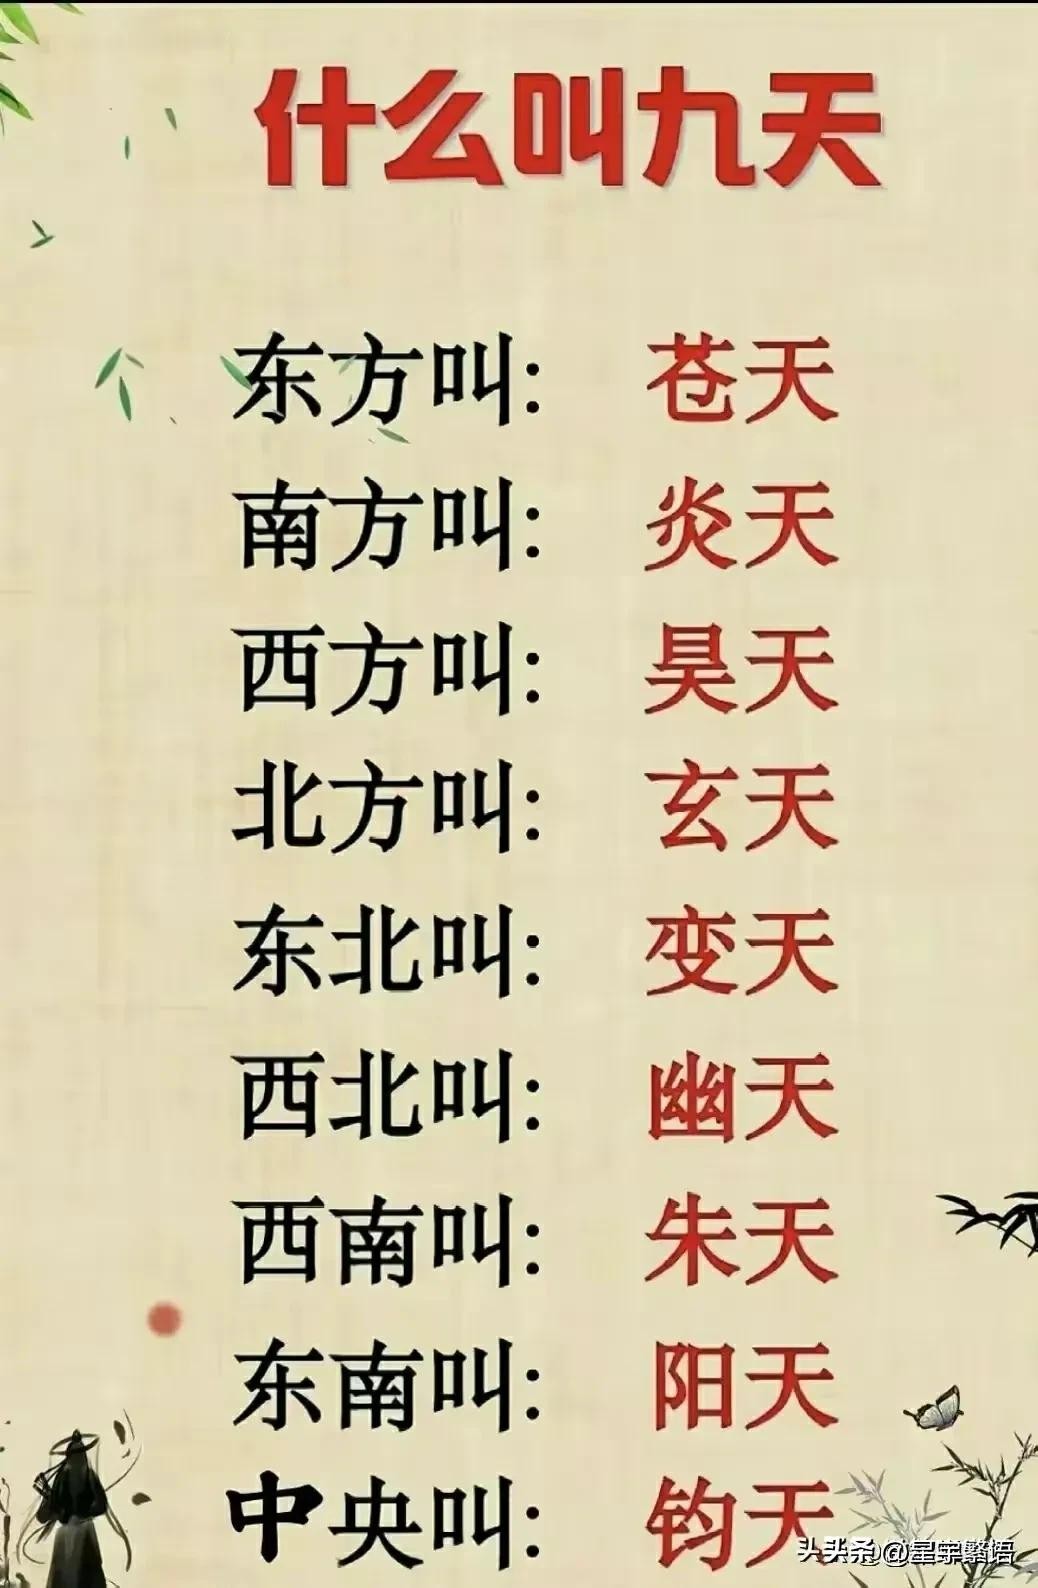 什么叫九天
东方叫: 苍天
南方叫: 炎天
西方叫: 昊天
北方叫: 玄天
东北叫: 变天
西北叫: 幽天
西南叫: 朱天
东南叫: 阳天
中央叫: 钧天
头条 @星宇繁语